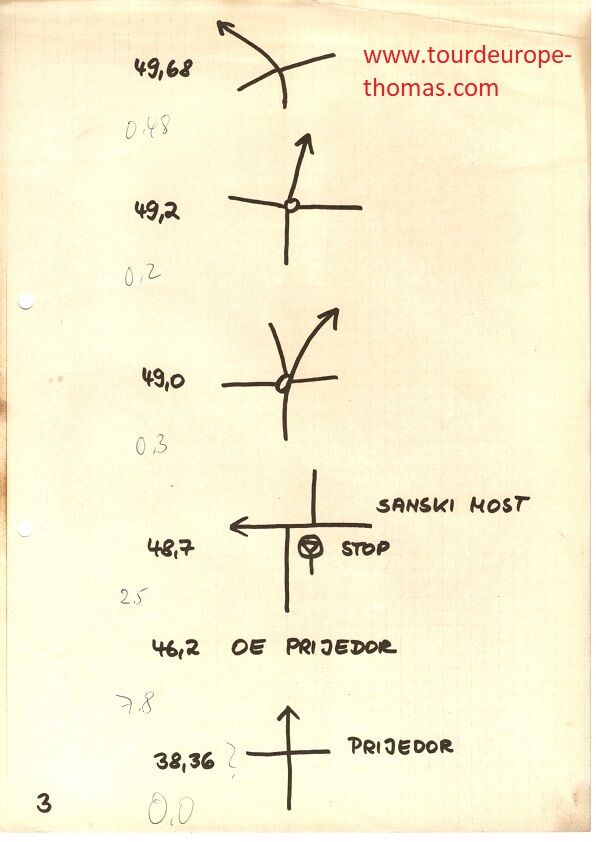 www.tourdeurope-
thomas.com
49,68
0.48
49,2
0,2
49,0
0,3
SANSKI MOST
48,7
STOP
2.5
46,2 OE PRIJEDOR
7.8
PRIJEDOR
38,36 ?
3
0,0